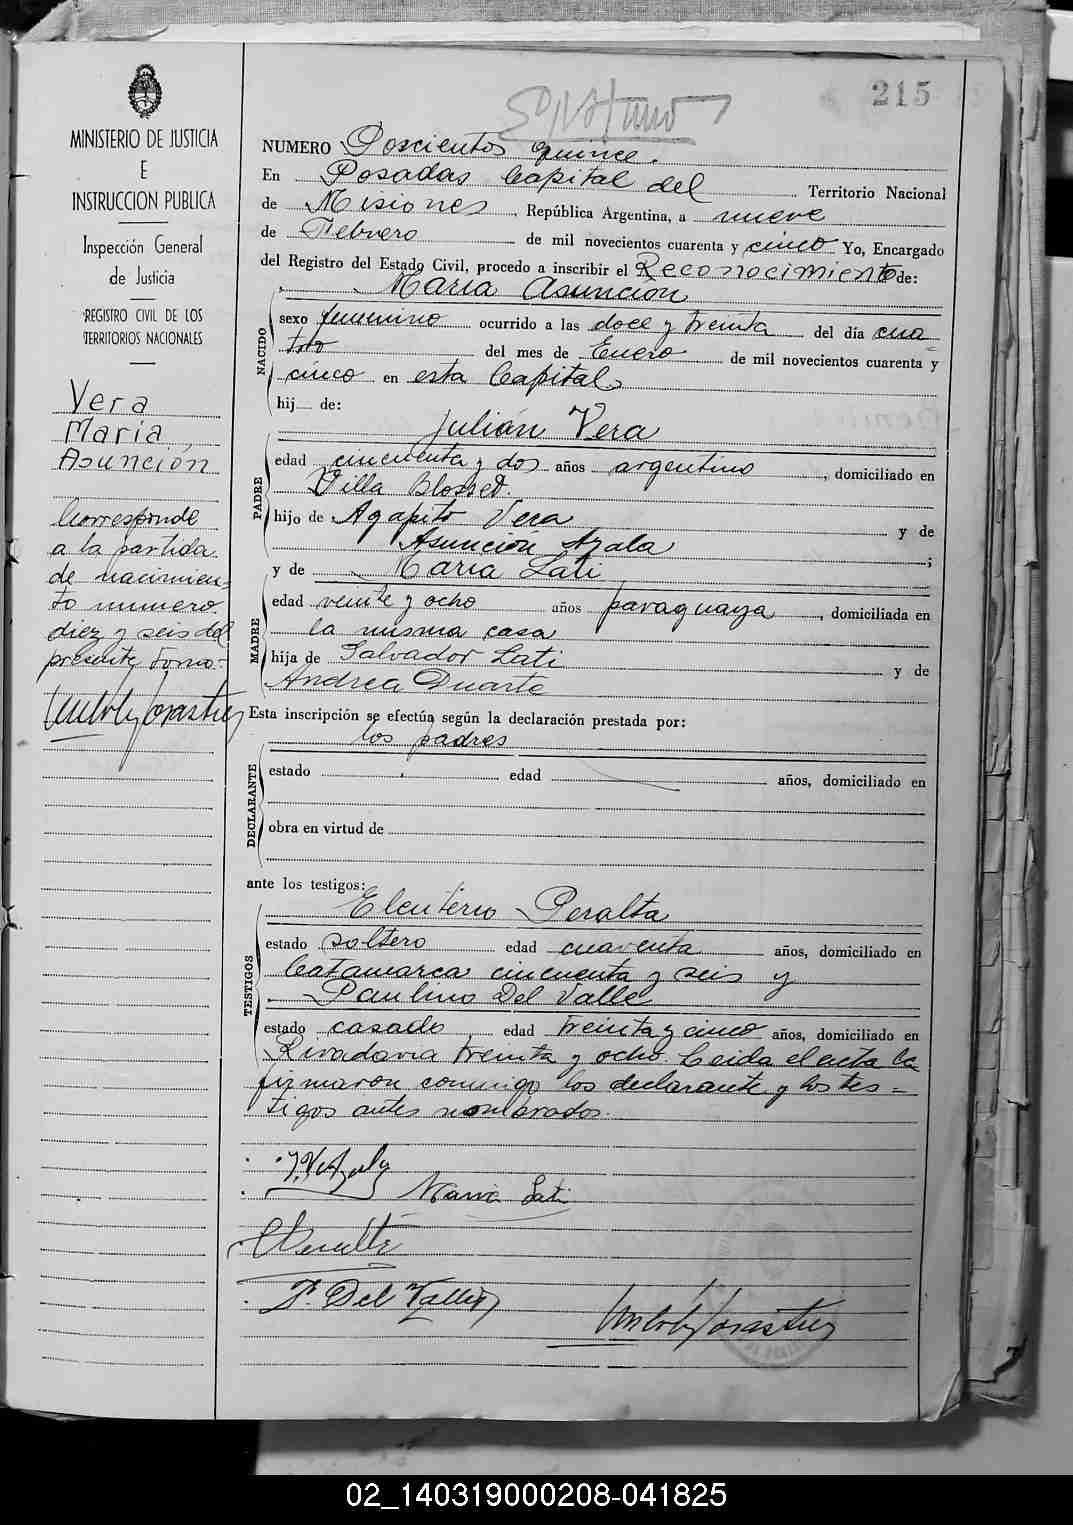 215
MINISTERIO DE JUSTICIA
E
INSTRUCCION PUBLICA
Inspección General
de Justicia
REGISTRO CIVIL DE LOS
TERRITORIOS NACIONALES
Vera
Maria
Asunción
Corresponde
a la partida
de nacimien-
to numero
diez y seis del
presente tomo.-
NUMERO Doscientos quince.
En Posadas Capital del Territorio Nacional
de Misiones, República Argentina, a nueve
de Febrero de mil novecientos cuarenta y cinco Yo, Encargado
del Registro del Estado Civil, procedo a inscribir el Reconocimiento de:
Maria Asunción
NACIDO
sexo femenino ocurrido a las doce y treinta del día cua
tro del mes de Enero de mil novecientos cuarenta y
cinco en esta Capital
hij de:
Julián Vera
PADRE
edad cincuenta y dos años argentino, domiciliado en
Villa Blosset.
hijo de Agapito Vera y de
Asunción Ayala;
y de Maria Lati
MADRE
edad veinte y ocho años paraguaya, domiciliada en
la misma casa
hija de Salvador Lati y de
Andrea Duarte
Esta inscripción se efectúa según la declaración prestada por:
los padres
DECLARANTE
estado edad años, domiciliado en
obra en virtud de
ante los testigos:
Eleuterio Peralta
TESTIGOS
estado soltero edad cuarenta años, domiciliado en
Catamarca cincuenta y seis y
Paulino Del Valle
estado casado edad treinta y cinco años, domiciliado en
Rivadavia treinta y ocho. Leida el acta la
firmaron conmigo los declarante y los tes=
tigos antes nombrados.
Maria Lati
P. Del Valle
02_140319000208-041825